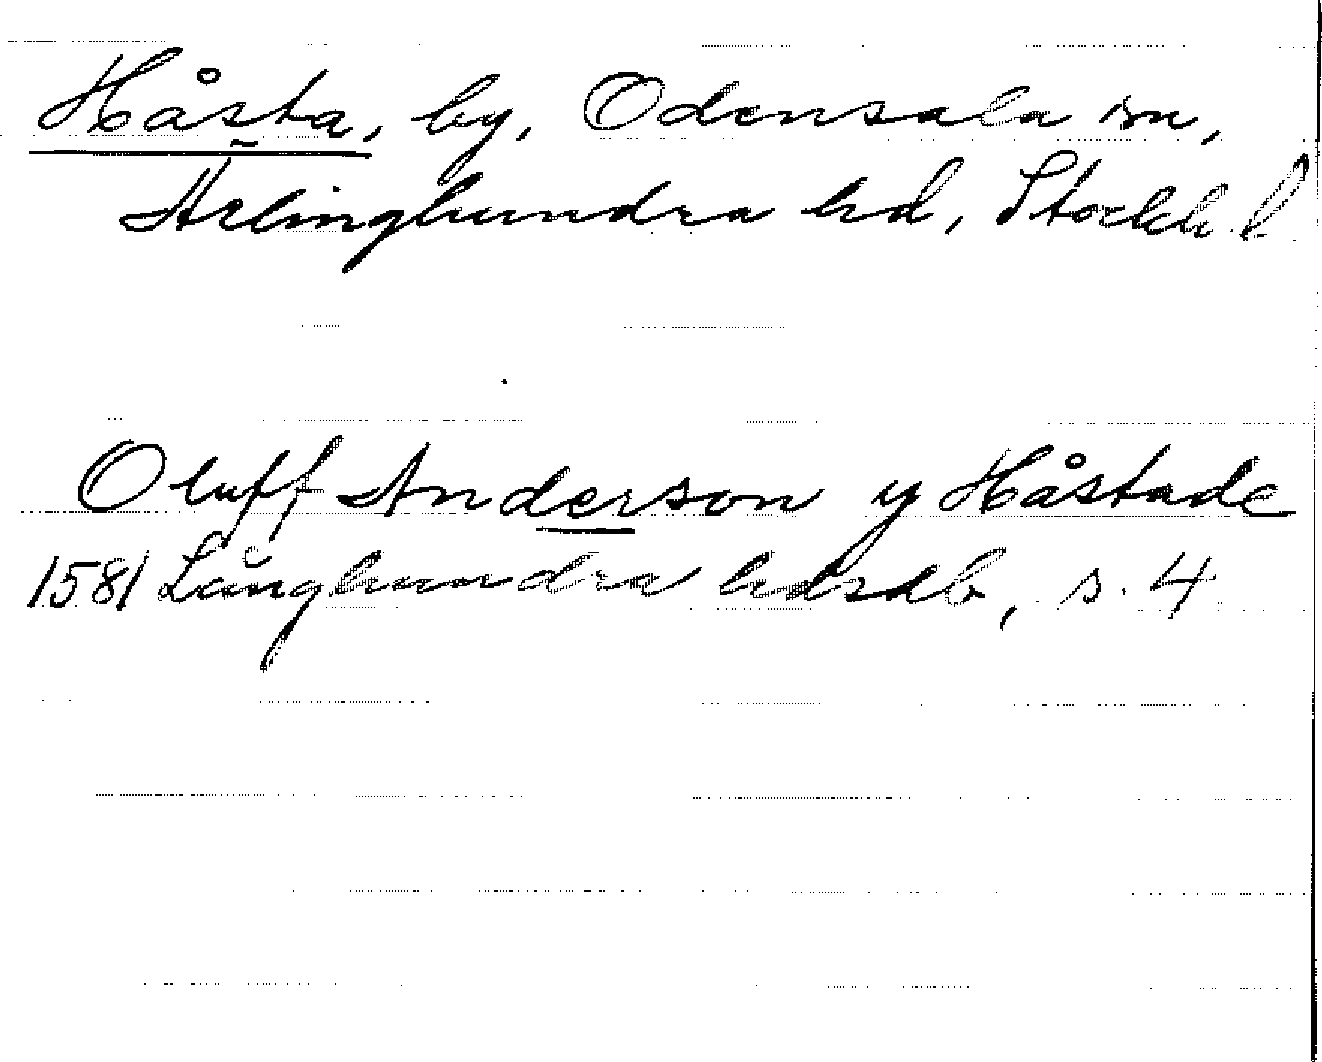 Håsta, by, Odensala sn,
Ärlinghundra hd, Stockh. l.
Oluff Anderson y Håstade
1581 Långhundra hdsdb, s. 4